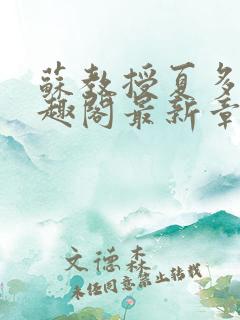 蘇教授夏多
趣閣最新章
文德森
未经同意禁止转载